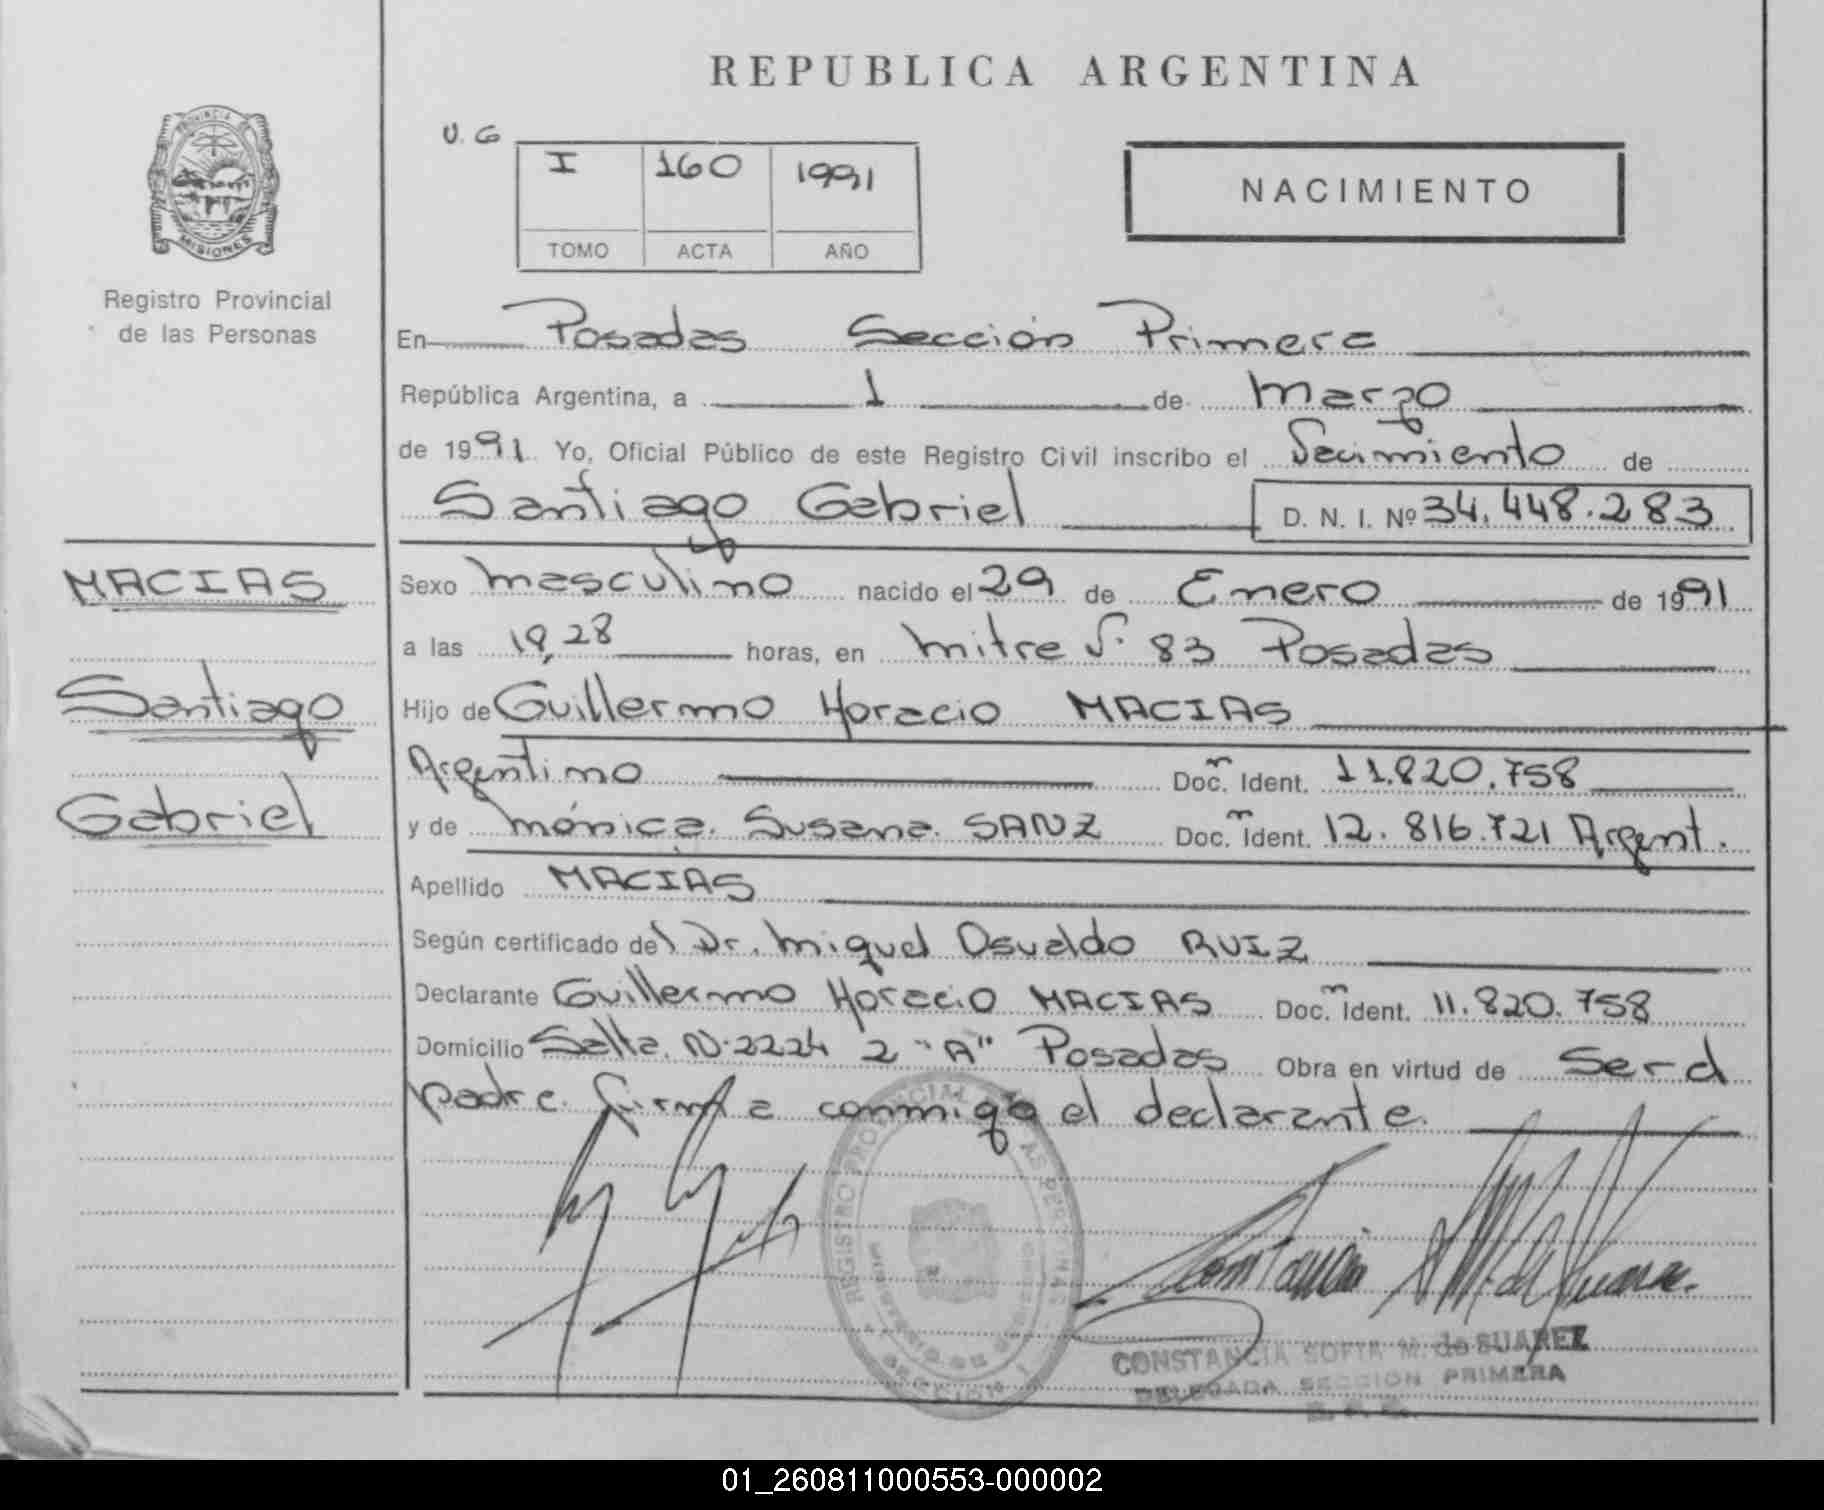 REPUBLICA ARGENTINA
PROVINCIA DE
MISIONES
Registro Provincial
de las Personas
U. G
I 160 1991
TOMO ACTA AÑO
NACIMIENTO
En Posadas Sección Primera
República Argentina, a 1 de Marzo
de 1991 Yo, Oficial Público de este Registro Civil inscribo el Nacimiento de
Santiago Gabriel D. N. I. Nº 34.448.283
MACIAS
Santiago
Gabriel
Sexo masculino nacido el 29 de Enero de 1991
a las 19,28 horas, en mitre N. 83 Posadas
Hijo de Guillermo Horacio MACIAS
Argentino Doc. Ident. 11.820.758
y de mónica Susana SANZ Doc. Ident. 12.816.721 Argent.
Apellido MACIAS
Según certificado del Dr. Miguel Osvaldo RUIZ
Declarante Guillermo Horacio MACIAS Doc. Ident. 11.820.758
Domicilio Salta N.2224 2 "A" Posadas Obra en virtud de Ser el
padre. Firma conmigo el declarante.
REGISTRO PROVINCIAL DE LAS PERSONAS
SECCION 1
CONSTANCIA SOFIA M. de SUAREZ
DELEGADA SECCION PRIMERA
01_260811000553-000002